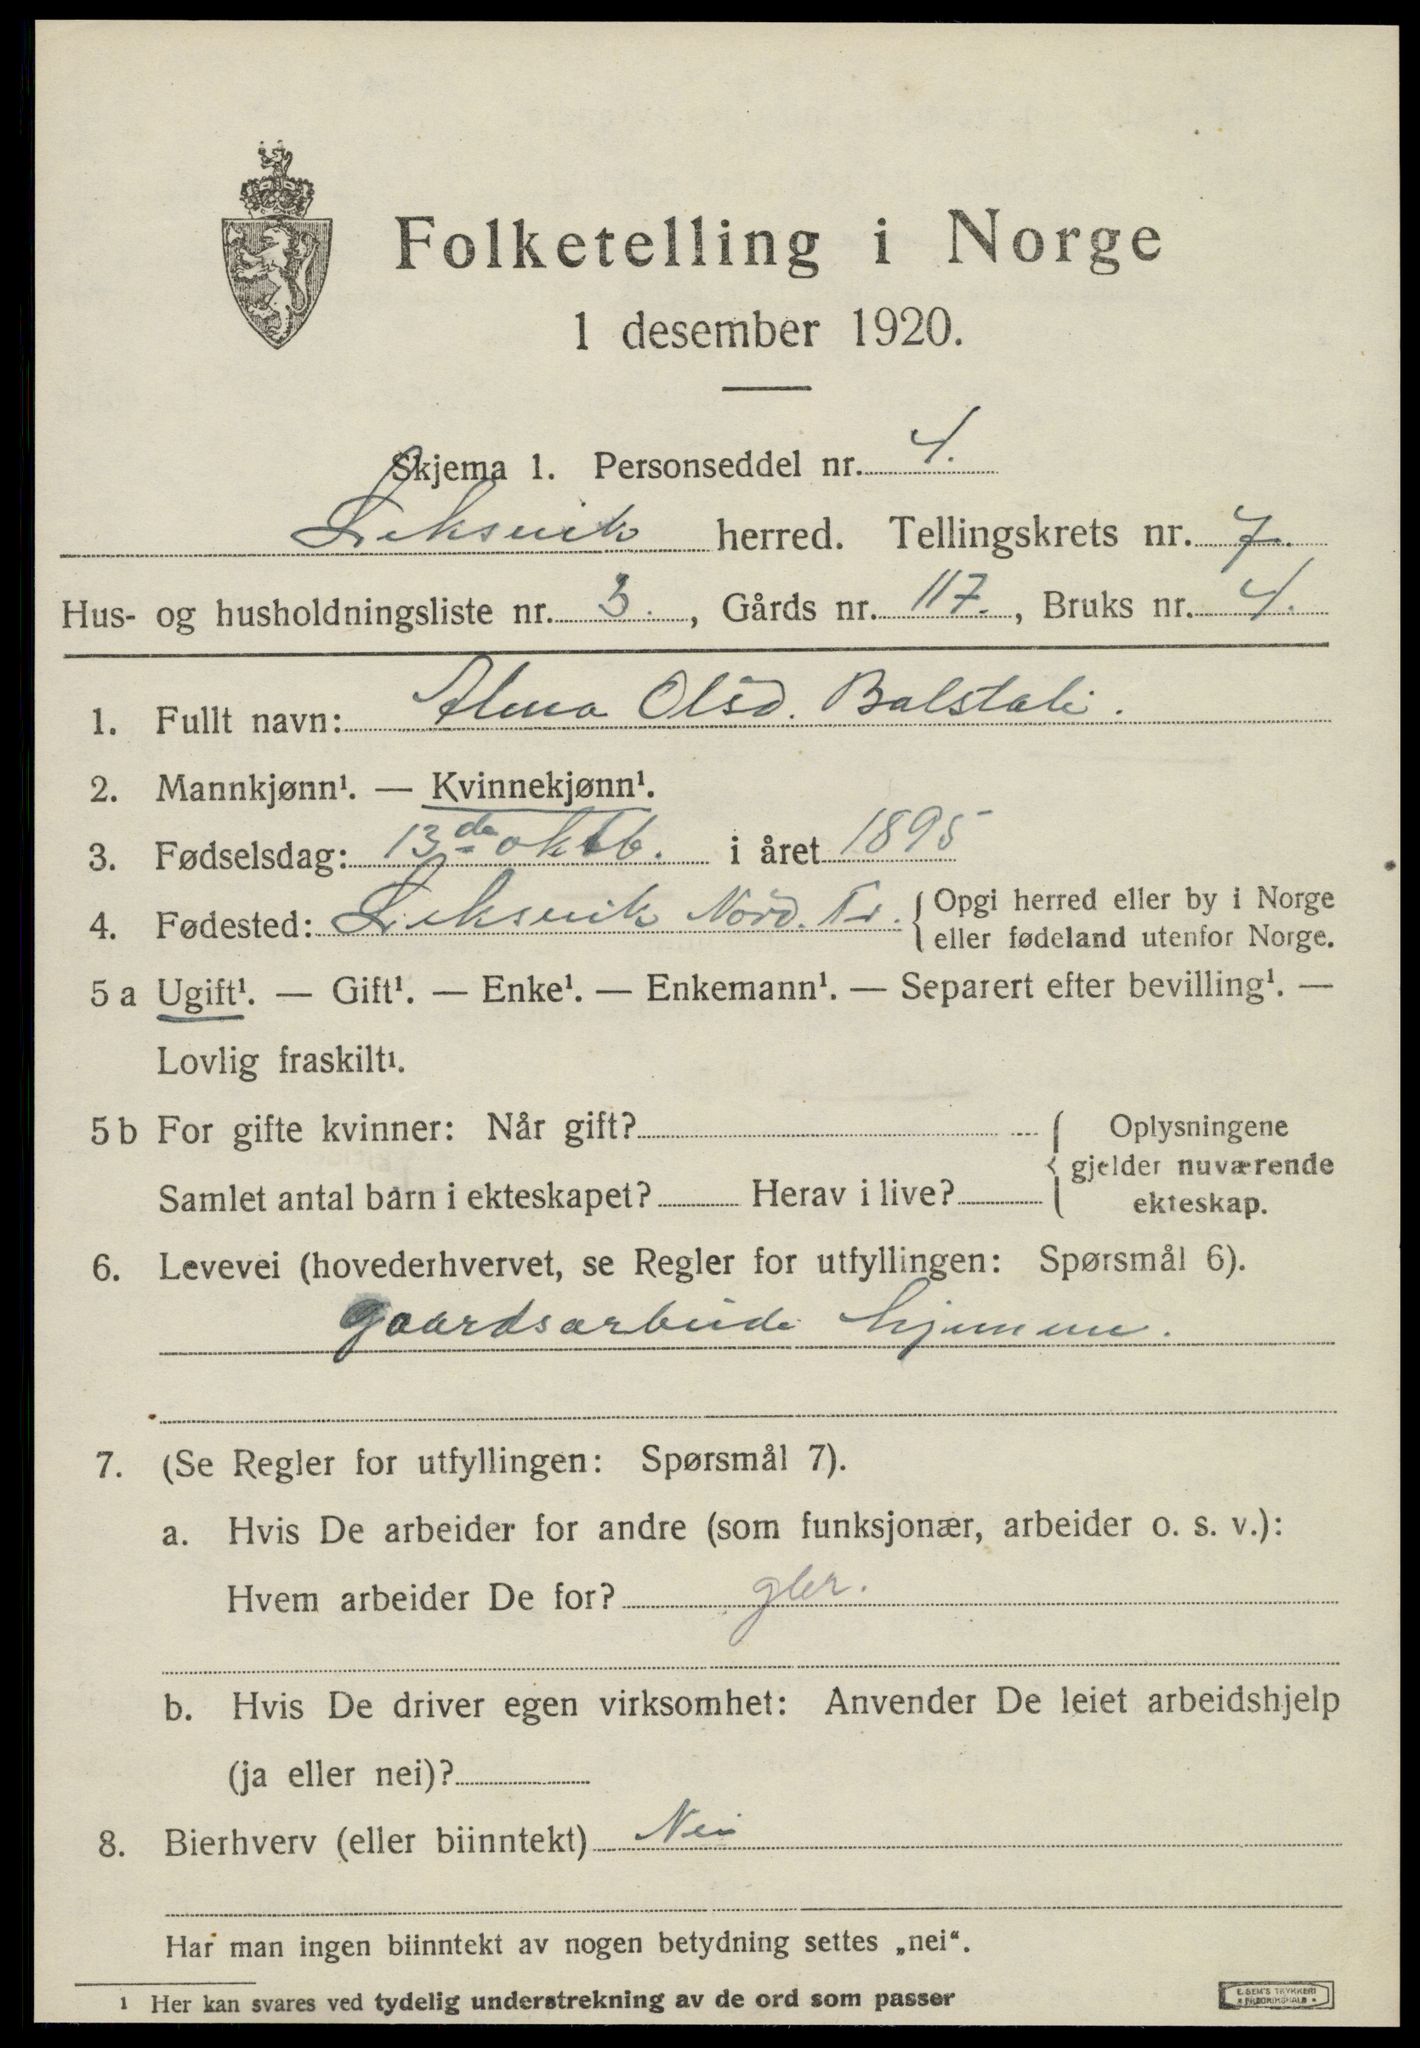 Folketelling i Norge
1 desember 1920.
Skjema 1. Personseddel nr. 4.
Leksvik herred. Tellingskrets nr. 7.
Hus- og husholdningsliste nr. 3., Gårds nr. 117., Bruks nr. 4.
1. Fullt navn: Alma Olsd. Balstali.
2. Mannkjønn¹. — Kvinnekjønn¹.
3. Fødselsdag: 13de oktb. i året 1895
4. Fødested: Leksvik Nord. Tr. { Opgi herred eller by i Norge
eller fødeland utenfor Norge.
5 a Ugift¹. — Gift¹. — Enke¹. — Enkemann¹. — Separert efter bevilling¹. —
Lovlig fraskilt¹.
5 b For gifte kvinner: Når gift? { Oplysningene
gjelder nuværende
Samlet antal barn i ekteskapet? Herav i live? ekteskap.
6. Levevei (hovederhvervet, se Regler for utfyllingen: Spørsmål 6).
gaardsarbeide hjemme.
7. (Se Regler for utfyllingen: Spørsmål 7).
a. Hvis De arbeider for andre (som funksjonær, arbeider o. s. v.):
Hvem arbeider De for? gbr.
b. Hvis De driver egen virksomhet: Anvender De leiet arbeidshjelp
(ja eller nei)?
8. Bierhverv (eller biinntekt) Nei
Har man ingen biinntekt av nogen betydning settes „nei“.
¹ Her kan svares ved tydelig understrekning av de ord som passer
E. SEM'S TRYKKERI
FREDRIKSHALD